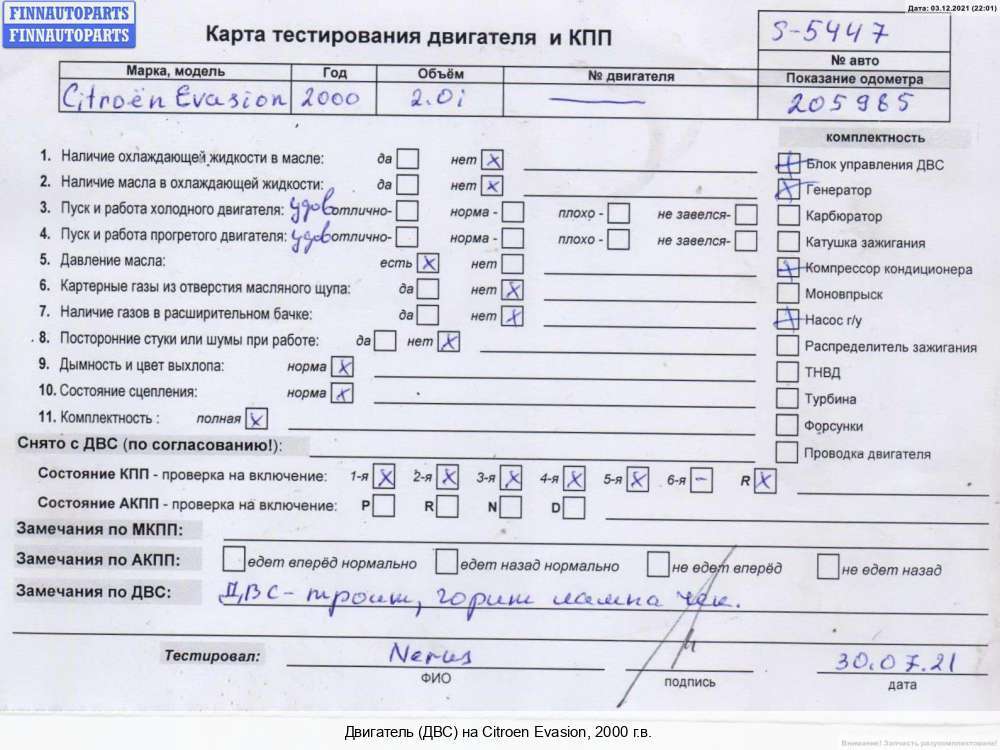 FINNAUTOPARTS
FINNAUTOPARTS
Дата: 03.12.2021 (22:01)
Карта тестирования двигателя и КПП
S-5447
№ авто
Марка, модель Год Объём № двигателя Показание одометра
Citroën Evasion 2000 2.0i — 205985
комплектность
1. Наличие охлаждающей жидкости в масле: да нет X
Блок управления ДВС
2. Наличие масла в охлаждающей жидкости: да нет X
Генератор
3. Пуск и работа холодного двигателя: удов отлично- норма - плохо - не завелся-
Карбюратор
4. Пуск и работа прогретого двигателя: удов отлично- норма - плохо - не завелся-
Катушка зажигания
5. Давление масла: есть X нет
Компрессор кондиционера
6. Картерные газы из отверстия масляного щупа: да нет X
Моновпрыск
7. Наличие газов в расширительном бачке: да нет X
Насос г/у
8. Посторонние стуки или шумы при работе: да нет X
Распределитель зажигания
9. Дымность и цвет выхлопа: норма X
ТНВД
10. Состояние сцепления: норма X
Турбина
11. Комплектность : полная X
Форсунки
Снято с ДВС (по согласованию!):
Проводка двигателя
Состояние КПП - проверка на включение: 1-я X 2-я X 3-я X 4-я X 5-я X 6-я – R X
Состояние АКПП - проверка на включение: P R N D
Замечания по МКПП:
Замечания по АКПП: едет вперёд нормально едет назад нормально не едет вперёд не едет назад
Замечания по ДВС: ДВС - троит, горит лампа чек.
Тестировал: Nerus 30.07.21
ФИО подпись дата
Двигатель (ДВС) на Citroen Evasion, 2000 г.в.
Внимание! Запчасть разукомплектована!